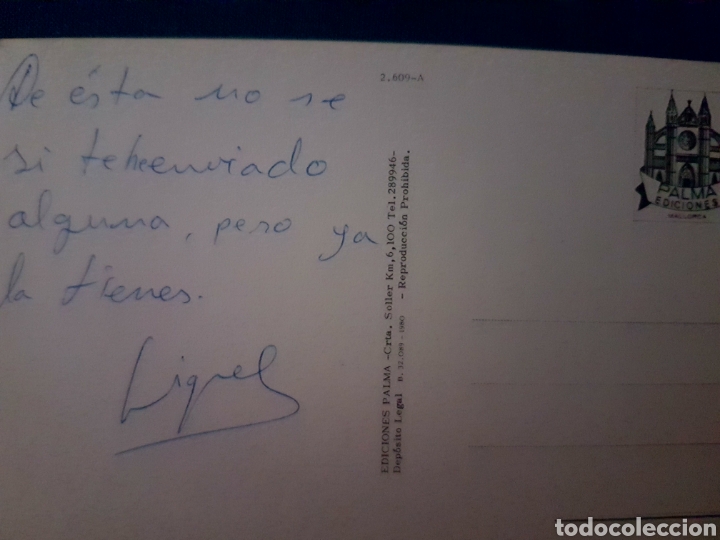 De ésta no se
si tehenviado
alguna, pero ya
la tienes.
Miquel
2.609-A
EDICIONES PALMA -Crta. Soller Km,6,100 Tel.289946-
Depósito Legal B. 32.089 - 1980 - Reproducción Prohibida.
PALMA
EDICIONES
MALLORCA
todocoleccion
todocoleccion.net